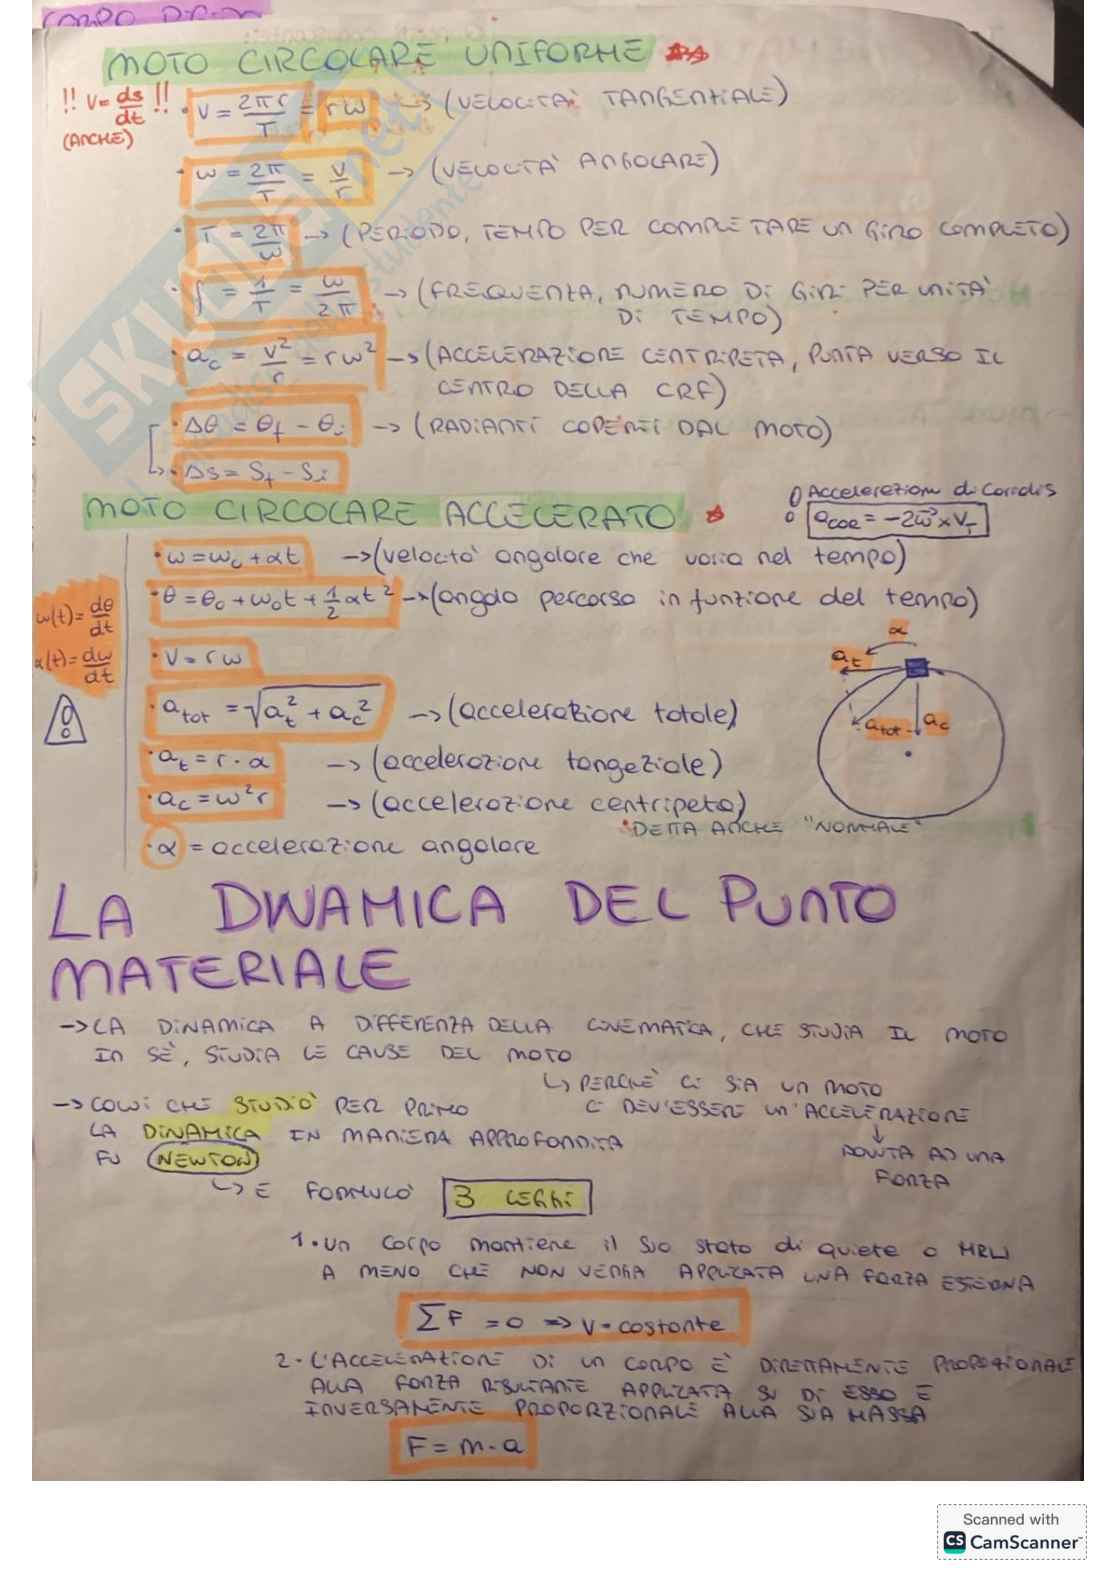 CORPO
MOTO CIRCOLARE UNIFORME
!! V = ds/dt !! (ANCHE)
· V = 2πr/T = rω -> (VELOCITÀ TANGENZIALE)
· ω = 2π/T = V/r -> (VELOCITÀ ANGOLARE)
· T = 2π/ω -> (PERIODO, TEMPO PER COMPLETARE UN GIRO COMPLETO)
· f = 1/T = ω/2π -> (FREQUENZA, NUMERO DI GIRI PER UNITÀ
DI TEMPO)
· ac = V²/r = rω² -> (ACCELERAZIONE CENTRIPETA, PUNTA VERSO IL
CENTRO DELLA CRF)
· Δθ = θf - θi -> (RADIANTI COPERTI DAL MOTO)
· ΔS = Sf - Si
Accelerazione di Coriolis
MOTO CIRCOLARE ACCELERATO
aCOR = -2ω × VT
· ω = ω0 + αt -> (velocità angolare che varia nel tempo)
· θ = θ0 + ω0t + 1/2 αt² -> (angolo percorso in funzione del tempo)
ω(t) = dθ/dt
α(t) = dω/dt
· V = rω
α
at
atot
ac
· atot = √at² + ac² -> (accelerazione totale)
· at = r · α -> (accelerazione tangeziale)
· ac = ω²r -> (accelerazione centripeta)
*DETTA ANCHE "NORMALE"
· α = accelerazione angolare
LA DINAMICA DEL PUNTO
MATERIALE
-> LA DINAMICA A DIFFERENZA DELLA CINEMATICA, CHE STUDIA IL MOTO
IN SÈ, STUDIA LE CAUSE DEL MOTO
↳ PERCHÈ CI SIA UN MOTO
CI DEV'ESSERE UN'ACCELERAZIONE
↓
DOVUTA AD UNA
FORZA
-> COLUI CHE STUDIÒ PER PRIMO
LA DINAMICA IN MANIERA APPROFONDITA
FU NEWTON
↳ E FORMULÒ 3 LEGGI
1. Un corpo mantiene il suo stato di quiete o MRU
A MENO CHE NON VENGA APPLICATA UNA FORZA ESTERNA
ΣF = 0 => V = costante
2. L'ACCELERAZIONE DI UN CORPO È DIRETTAMENTE PROPORZIONALE
ALLA FORZA RISULTANTE APPLICATA SU DI ESSO E
INVERSAMENTE PROPORZIONALE ALLA SUA MASSA
F = m · a
Scanned with
CS CamScanner